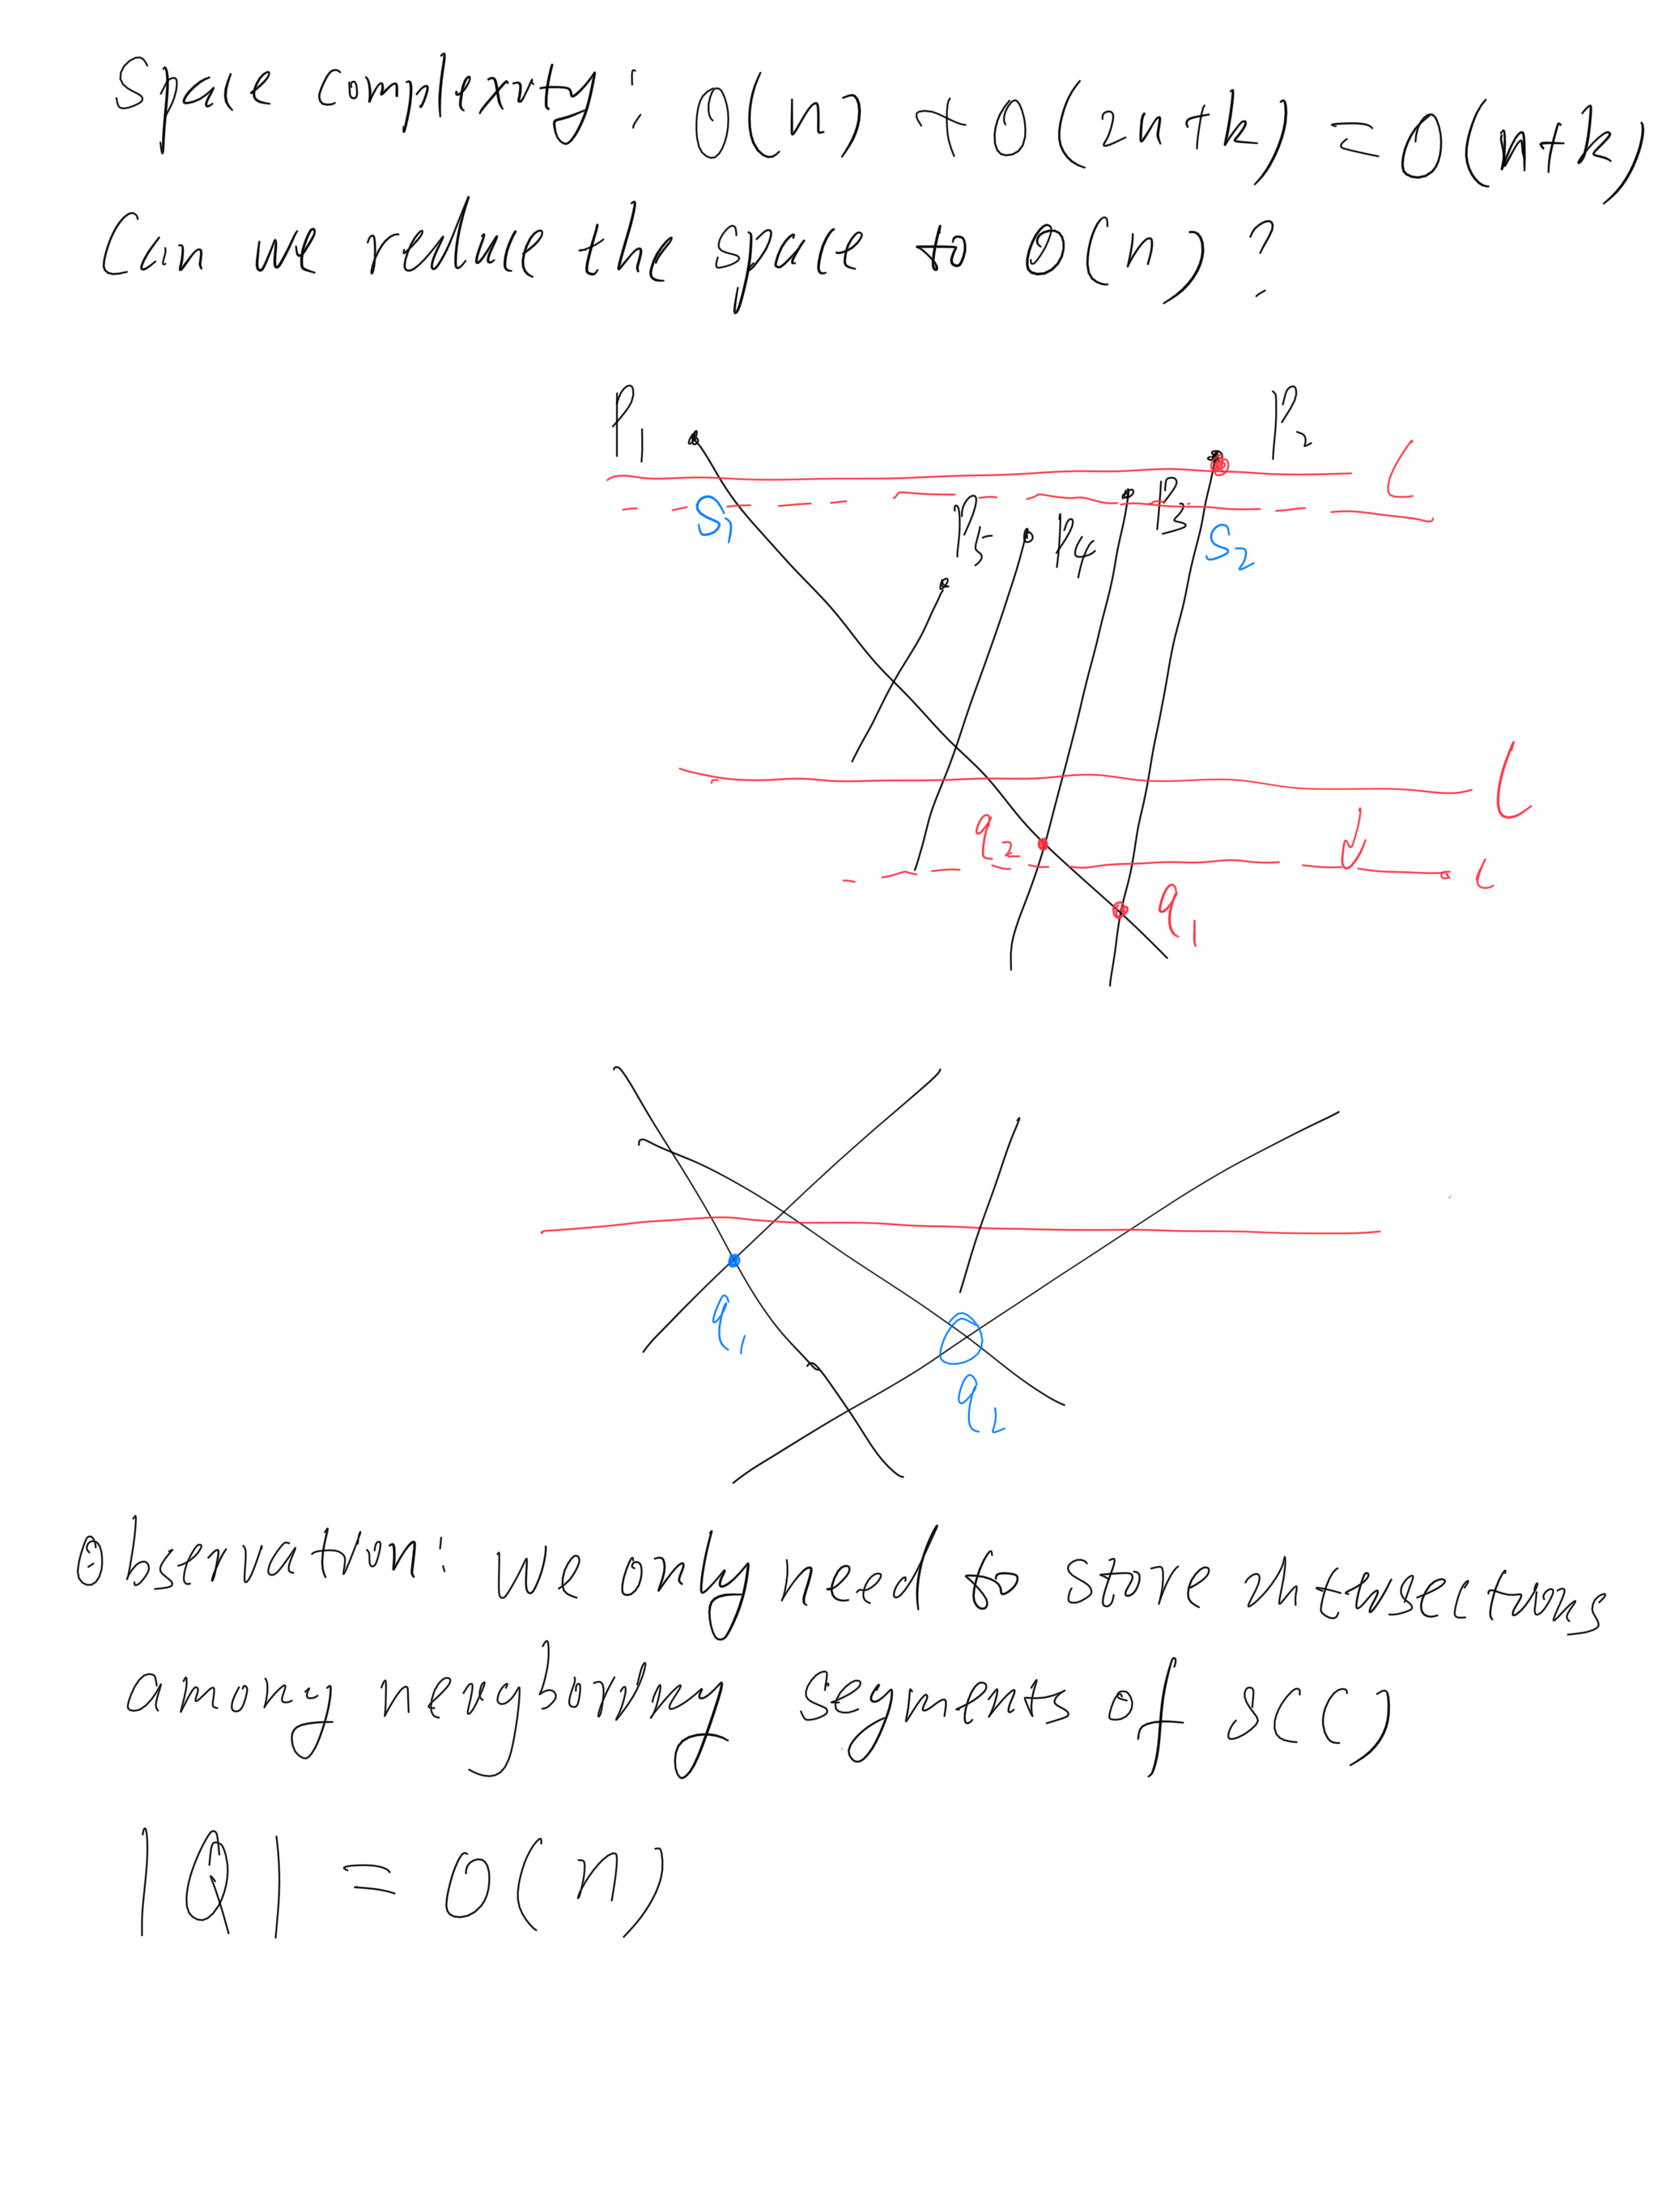 Space complexity: O(n) + O(2n+k) = O(n+k)
Can we reduce the space to O(n)?
P1
P2
L
S1
P5
P4
P3
S2
L
q2
L
q1
q1
q2
Observation: We only need to store intersections
among neighboring segments of S(L)
|Q| = O(n)